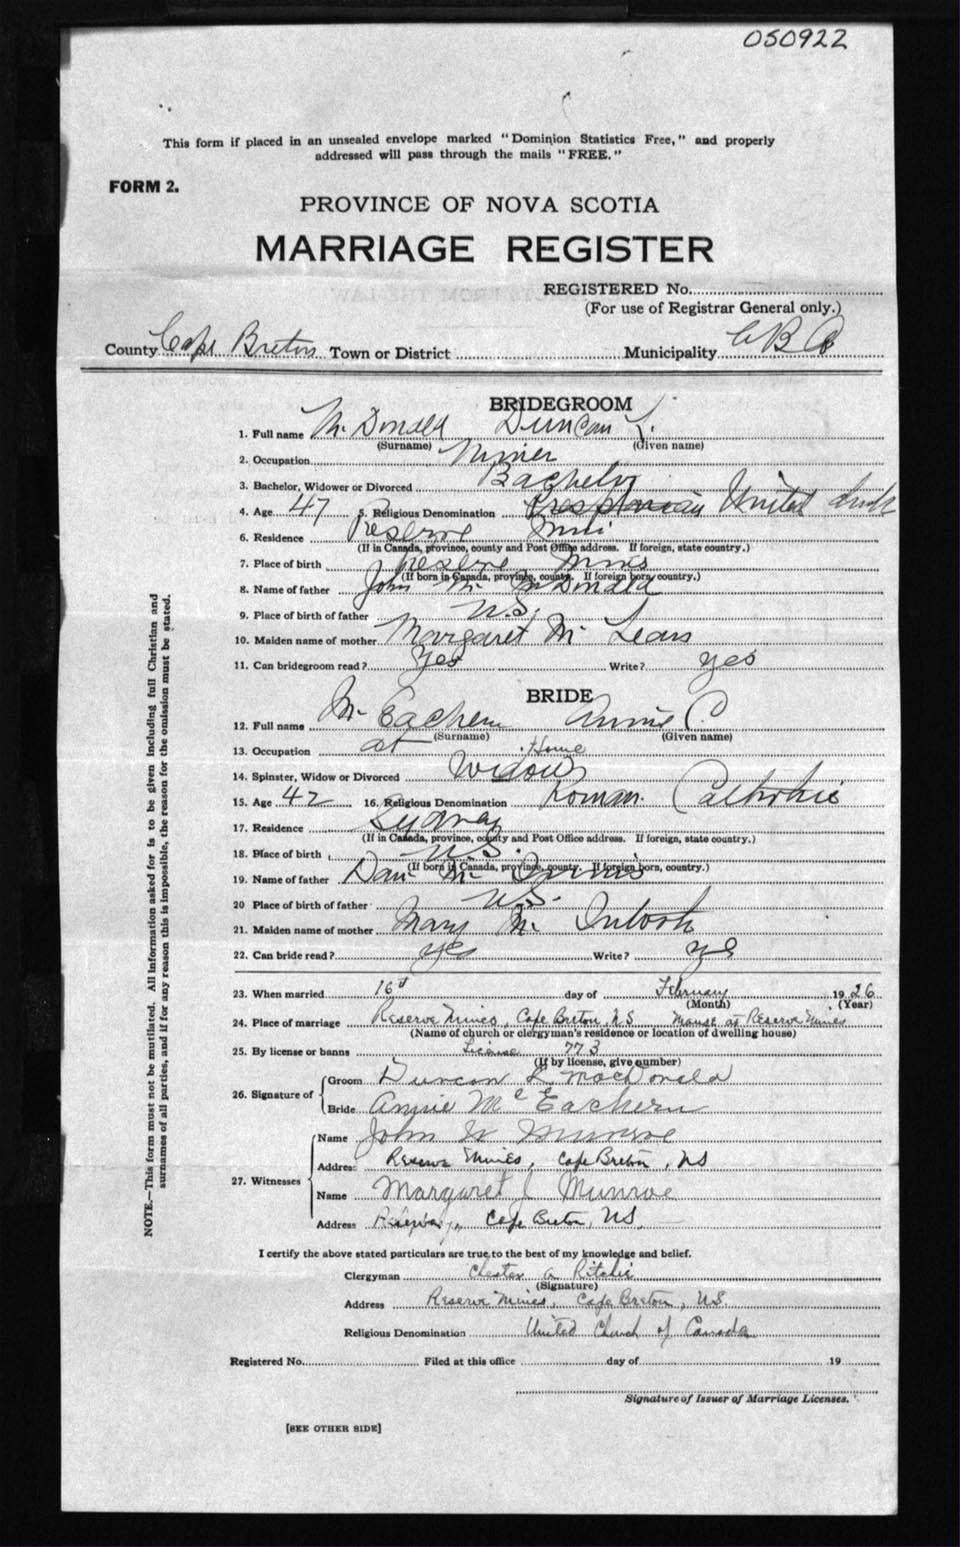 050922
This form if placed in an unsealed envelope marked "Dominion Statistics Free," and properly
addressed will pass through the mails "FREE."
FORM 2.
PROVINCE OF NOVA SCOTIA
MARRIAGE REGISTER
REGISTERED No.
(For use of Registrar General only.)
County Cape Breton Town or District Municipality C B
BRIDEGROOM
1. Full name McDonald Duncan L.
(Surname) (Given name)
2. Occupation Miner
3. Bachelor, Widower or Divorced Bachelor
4. Age 47 5. Religious Denomination Presbyterian United
6. Residence Reserve
(If in Canada, province, county and Post Office address. If foreign, state country.)
7. Place of birth Reserve Mines
(If born in Canada, province, county. If foreign born, country.)
8. Name of father John McDonald
9. Place of birth of father N.S.
10. Maiden name of mother Margaret Mc Lean
11. Can bridegroom read? Yes Write? yes
BRIDE
12. Full name McEachern Annie C.
(Surname) (Given name)
13. Occupation at Home
14. Spinster, Widow or Divorced Widow
15. Age 42 16. Religious Denomination Roman Catholic
17. Residence Sydney
(If in Canada, province, county and Post Office address. If foreign, state country.)
18. Place of birth N.S.
(If born in Canada, province, county. If foreign born, country.)
19. Name of father Dan Mc Innis
20 Place of birth of father N.S.
21. Maiden name of mother Mary Mc Intosh
22. Can bride read? yes Write? yes
23. When married 16th day of February 1926
(Month) (Year)
24. Place of marriage Reserve Mines, Cape Breton, N.S Manse at Reserve Mines
(Name of church or clergyman's residence or location of dwelling house)
25. By license or banns License 773
(If by license, give number)
26. Signature of
Groom Duncan L MacDonald
Bride Annie McEachern
27. Witnesses
Name John W Munroe
Address Reserve Mines, Cape Breton, N.S
Name Margaret J Munroe
Address Cape Breton, N.S.
I certify the above stated particulars are true to the best of my knowledge and belief.
Clergyman Chester A Ritchie
(Signature)
Address Reserve Mines, Cape Breton, N.S.
Religious Denomination United Church of Canada
Registered No. Filed at this office day of 19
Signature of Issuer of Marriage Licenses.
[SEE OTHER SIDE]
NOTE.—This form must not be mutilated. All information asked for is to be given including full Christian and
surnames of all parties, and if for any reason this is impossible, the reason for the omission must be stated.